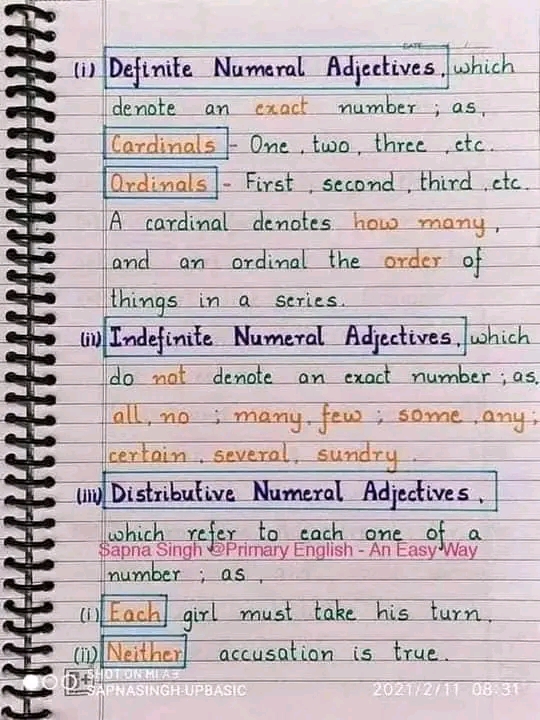 DATE
(i) Definite Numeral Adjectives, which
denote an exact number ; as,
Cardinals - One, two, three, etc.
Ordinals - First, second, third, etc.
A cardinal denotes how many,
and an ordinal the order of
things in a series.
(ii) Indefinite Numeral Adjectives, which
do not denote an exact number ; as,
all, no ; many, few ; some, any ;
certain, several, sundry.
(iii) Distributive Numeral Adjectives,
which refer to each one of a
Sapna Singh @Primary English - An Easy Way
number ; as,
(i) Each girl must take his turn.
(ii) Neither accusation is true.
SHOT ON MI A3
SAPNASINGH-UPBASIC
2021/2/11 08:31